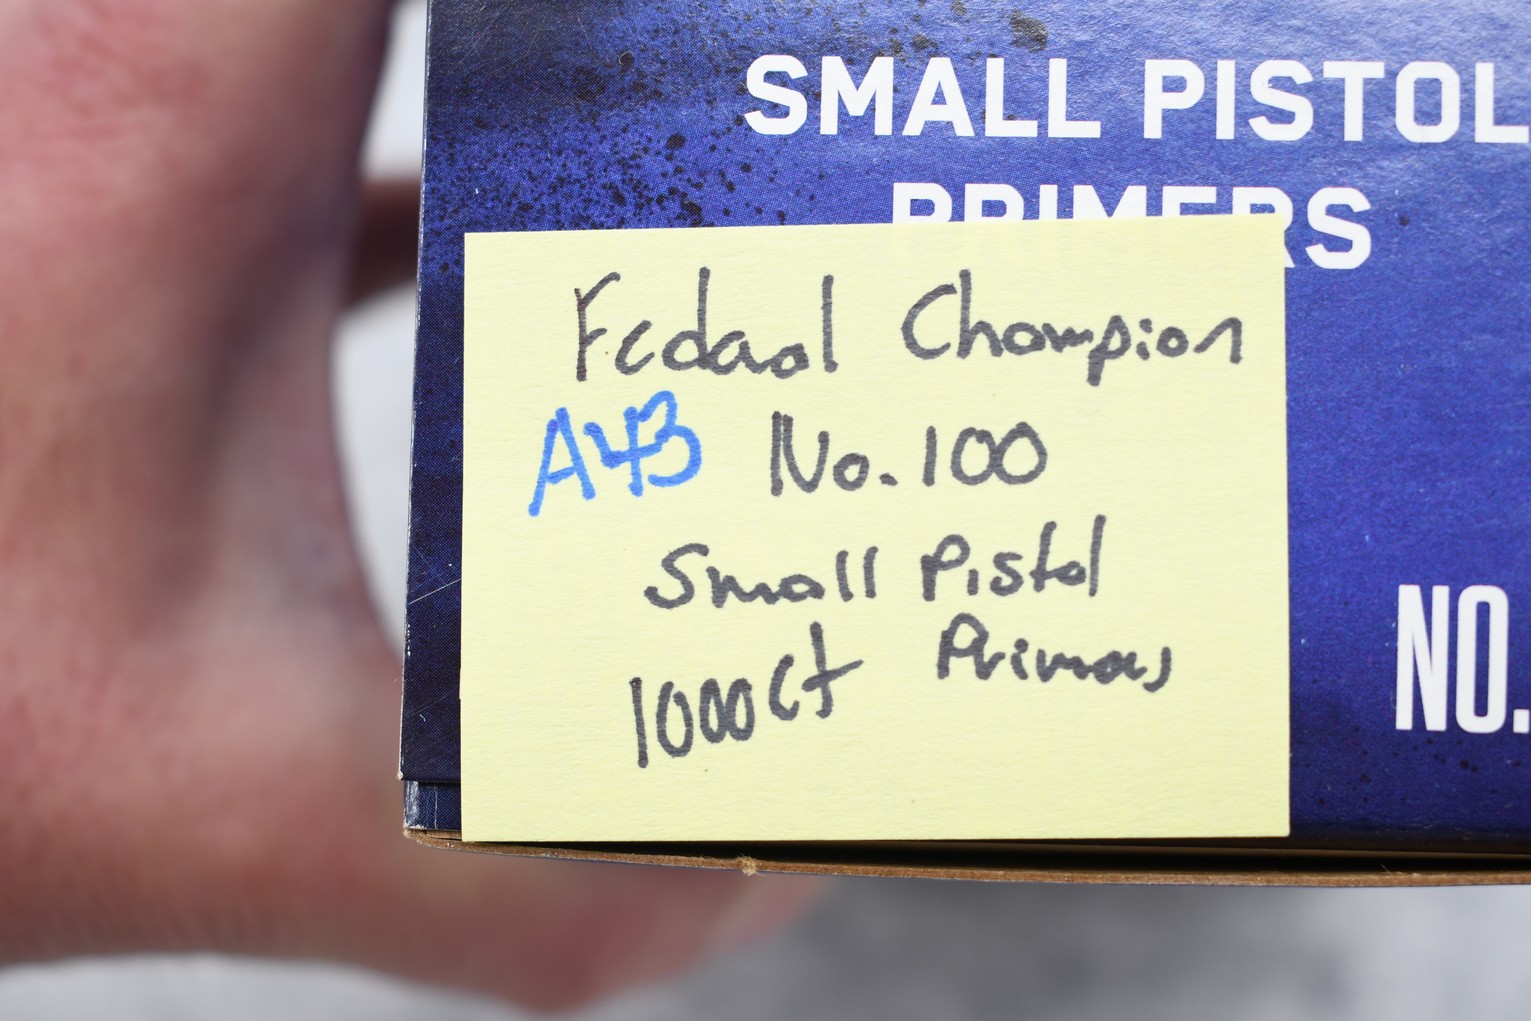 SMALL PISTOL
PRIMERS
Federal Champion
A43 No. 100
Small Pistol
1000 ct Primers
NO.